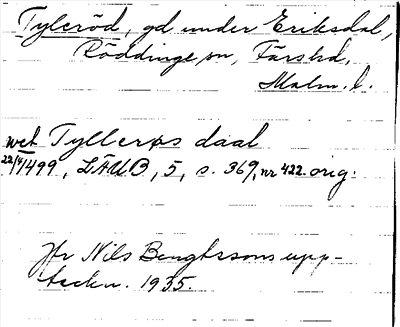 Tyleröd, gd under Eriksdal,
Röddinge sn, Färs hd,
Malm. l.
wet Tyllerøs daal
22/4 1499, LÄUB, 5, s. 369, nr 422. orig.
Jfr Nils Bengtssons upp-
teckn. 1935.